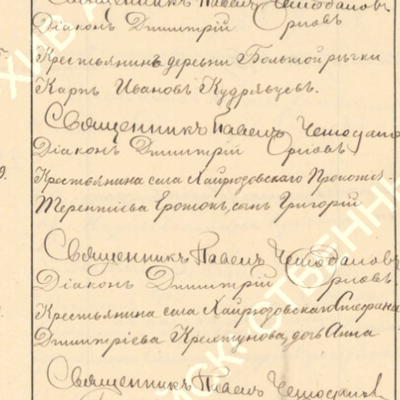 Священникъ Павелъ Чемодановъ
Діаконъ Дмитрій Орловъ
Крестьянинъ деревни Большой рѣчки
Карпъ Ивановъ Кудрявцевъ.
Священникъ Павелъ Чемодано
Діаконъ Дмитрій Орловъ
9. Крестьянина села Хайрюзовскаго Прокопія
Терентіева сынъ Григорій
Священникъ Павелъ Чемодановъ
Діаконъ Дмитрій Орловъ
Крестьянина села Хайрюзовскаго Стефана
Дмитріева дочь Анна
Священникъ Павелъ